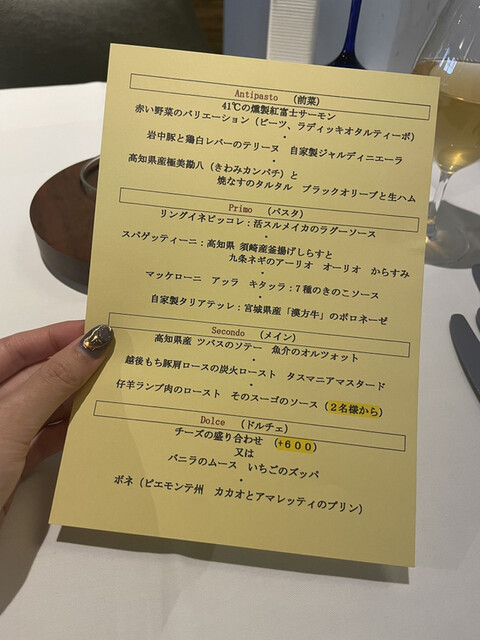 Antipasto （前菜）
41℃の燻製紅富士サーモン
赤い野菜のバリエーション（ビーツ、ラディッキオタルティーボ）
・
岩中豚と鶏白レバーのテリーヌ　自家製ジャルディニエーラ
・
高知県産極美勘八（きわみカンパチ）と
焼なすのタルタル　ブラックオリーブと生ハム
Primo （パスタ）
リングイネピッコレ：活スルメイカのラグーソース
・
スパゲッティーニ：高知県 須崎産釜揚げしらすと
九条ネギのアーリオ　オーリオ　からすみ
・
マッケローニ　アッラ　キタッラ：７種のきのこソース
・
自家製タリアテッレ：宮城県産「漢方牛」のボロネーゼ
Secondo （メイン）
高知県産 ツバスのソテー　魚介のオルツォット
・
越後もち豚肩ロースの炭火ロースト　タスマニアマスタード
・
仔羊ランプ肉のロースト　そのスーゴのソース（２名様から）
Dolce （ドルチェ）
チーズの盛り合わせ （+６００）
又は
バニラのムース　いちごのズッパ
・
ボネ（ピエモンテ州　カカオとアマレッティのプリン）